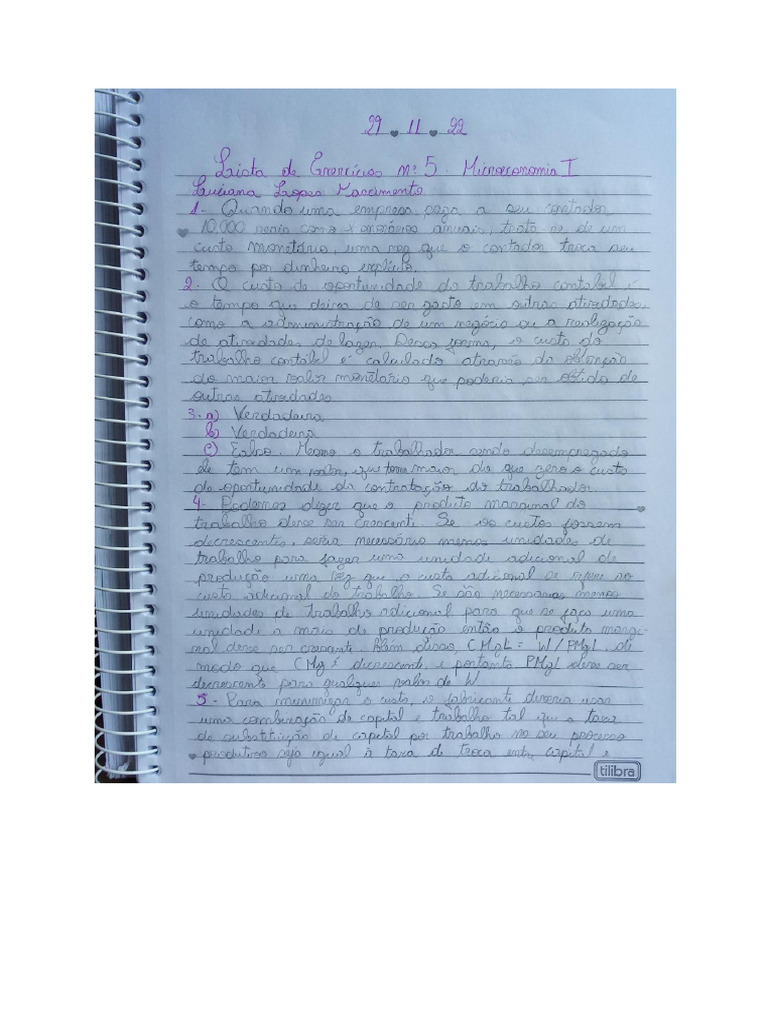 29 . 11 . 22
Lista de Exercícios nº 5 - Microeconomia I
Luciana Lopes Nascimento
1 - Quando uma empresa paga a seu contador
10.000 reais como honorários anuais, trata-se de um
custo monetário, uma vez que o contador troca seu
tempo por dinheiro explícito.
2 - O custo de oportunidade do trabalho contábel é
o tempo que deixa de ser gasto em outras atividades,
como a administração de um negócio ou a realização
de atividades de lazer. Dessa forma, o custo do
trabalho contábel é calculado através da obtenção
do maior valor monetário que poderia ser obtido de
outras atividades
3 - a) Verdadeira
b) Verdadeira
c) Falso. Mesmo o trabalhador sendo desempregado
ele tem um valor, que torna maior do que zero o custo
de oportunidade da contratação do trabalhador.
4 - Podemos dizer que o produto marginal do
trabalho deve ser crescente. Se os custos fossem
decrescentes, seria necessário menos unidades de
trabalho para fazer uma unidade adicional de
produção uma vez que o custo adicional se refere ao
custo adicional do trabalho. Se são necessárias menos
unidades de trabalho adicional para que se faça uma
unidade a mais de produção então o produto margi-
nal deve ser crescente. Além disso, CMgL = W / PMgL, de
modo que CMg é decrescente, e portanto PMgL deve ser
decrescente para qualquer valor de W
5 - Para minimizar o custo, o fabricante deveria usar
uma combinação de capital e trabalho tal que a taxa
de substituição de capital por trabalho no seu processo
produtivo seja igual à taxa de troca entre capital e
tilibra